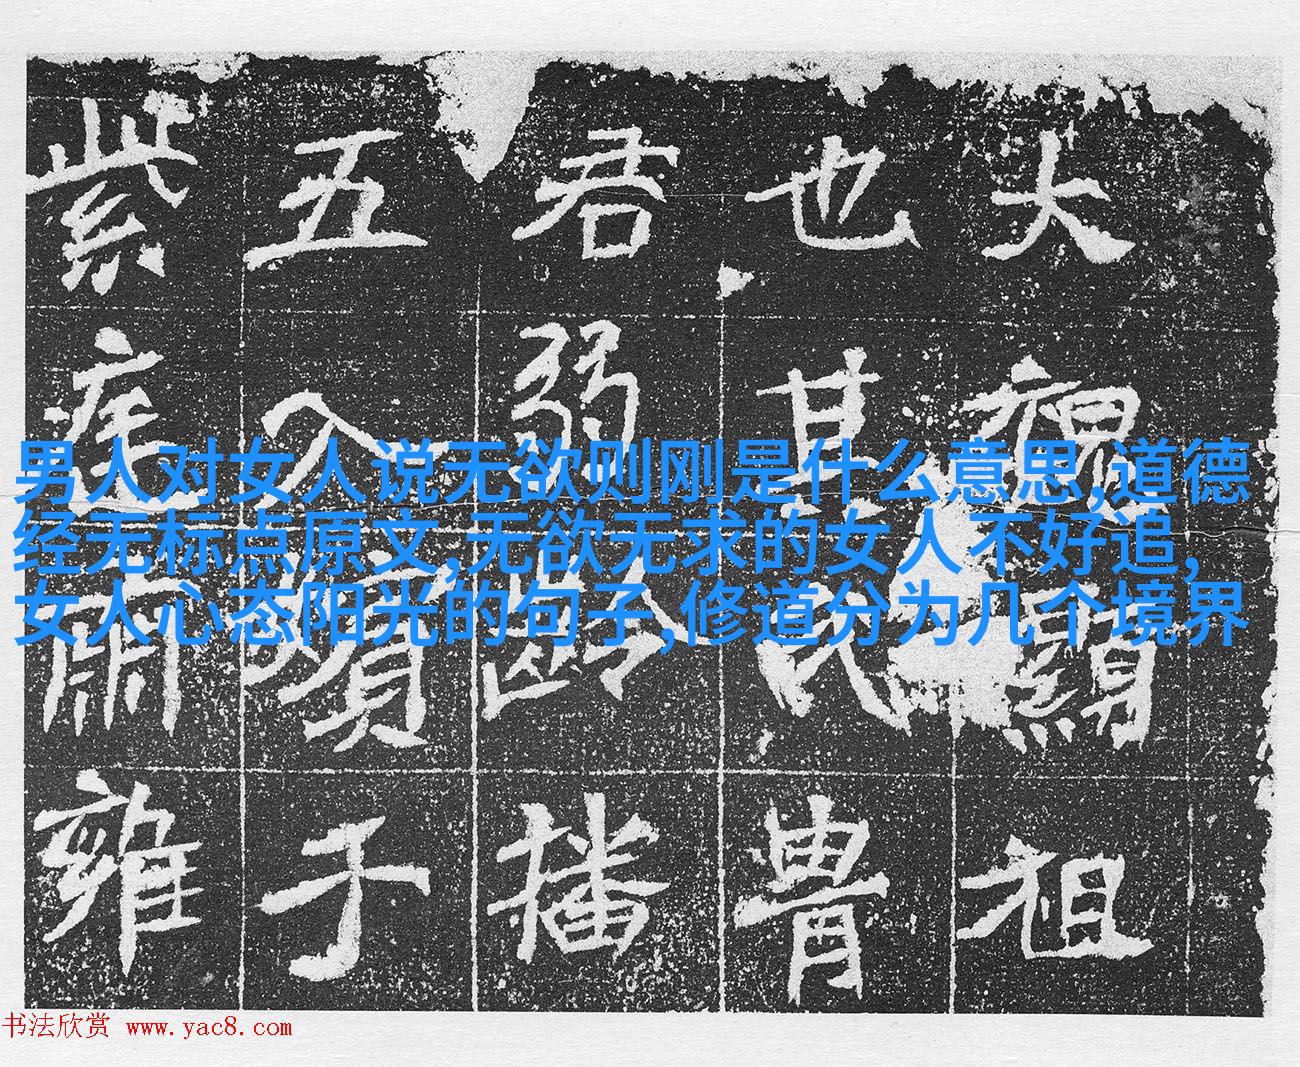 大祖
也其胄
君弱齡播
五入于
紫肅雍
男人对女人说无欲则刚是什么意思,道德
经无标点原文,无欲无求的女人不好追,
女人心态阳光的句子,修道分为几个境界
书法欣赏 www.yac8.com